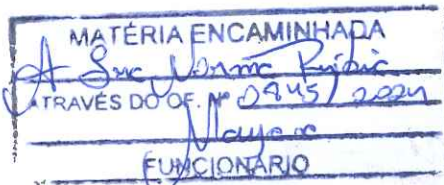 MATÉRIA ENCAMINHADA
A Sra Norma
ATRAVÉS DO OF. Nº 0845/2024
FUNCIONÁRIO